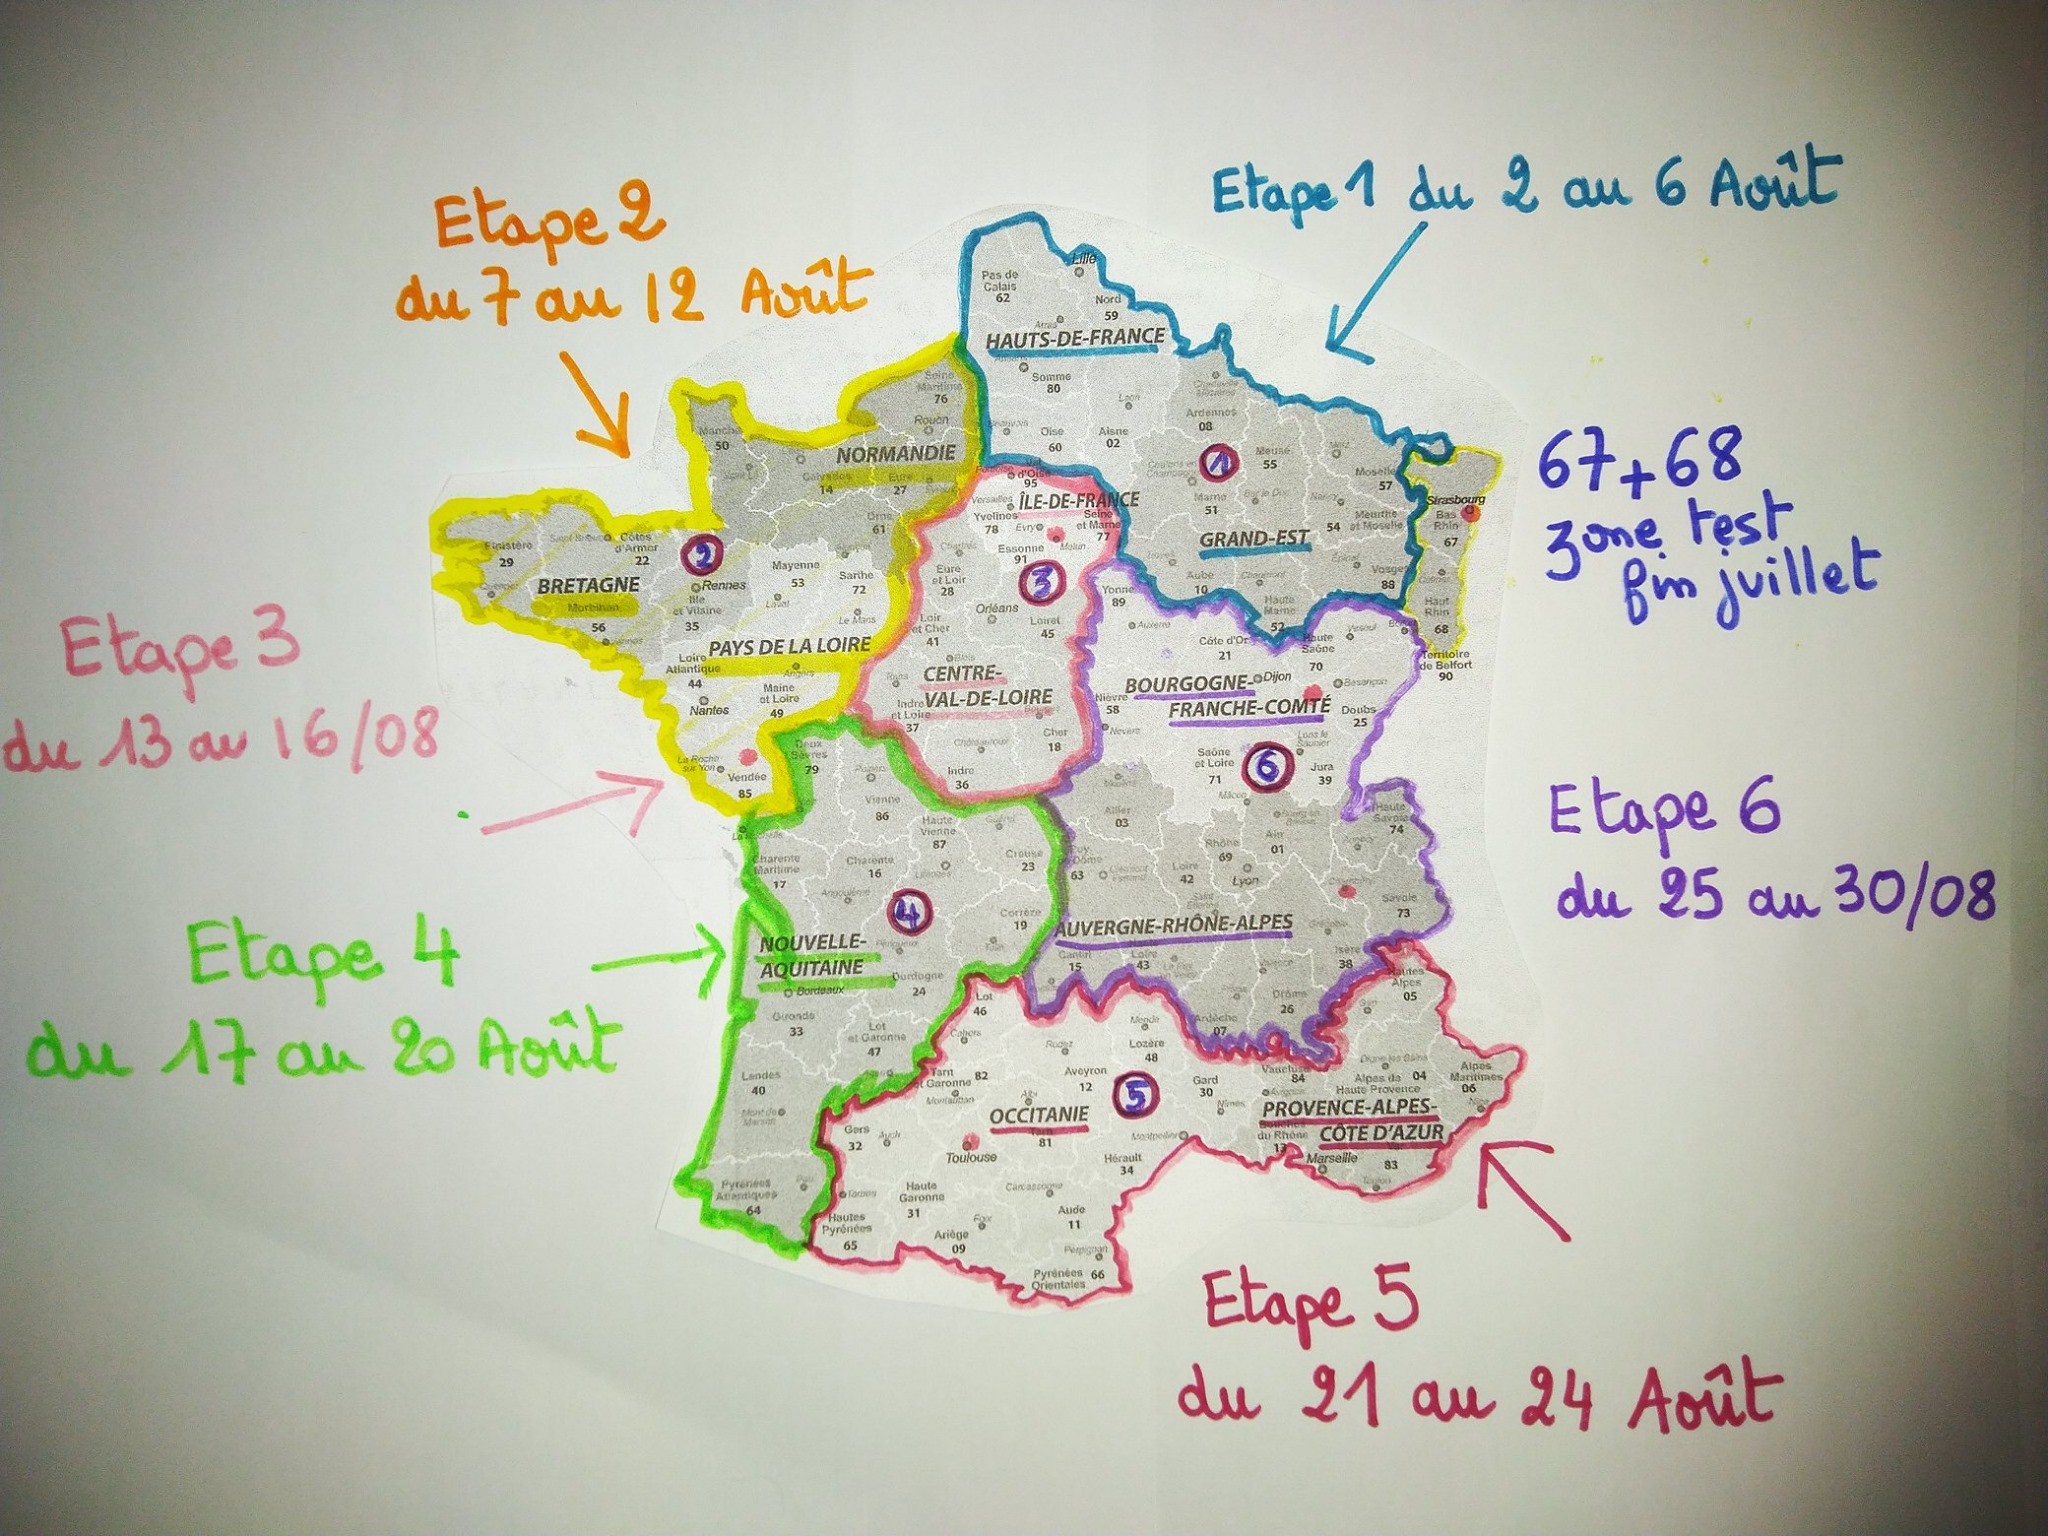 Etape 1 du 2 au 6 Août
Etape 2
du 7 au 12 Août
67+68
zone test
fin juillet
Etape 3
du 13 au 16/08
Etape 4
du 17 au 20 Août
Etape 6
du 25 au 30/08
Etape 5
du 21 au 24 Août
Lille
Pas de
Calais
62
Nord
59
Arras
HAUTS-DE-FRANCE
Somme
80
Laon
Oise
60
Aisne
02
Ardennes
08
1
Meuse
55
Moselle
57
Marne
51
54
Meurthe
et Moselle
GRAND-EST
Epinal
Vosges
88
Aube
10
Chaumont
Haute
Marne
52
Strasbourg
Bas
Rhin
67
Haut
Rhin
68
Territoire
de Belfort
90
Seine
Maritime
76
Rouen
NORMANDIE
Manche
50
Calvados
14
Eure
27
Orne
61
2
Finistère
29
Côtes
d'Armor
22
BRETAGNE
Morbihan
56
Rennes
Ille
et Vilaine
35
Mayenne
53
Laval
Sarthe
72
Le Mans
PAYS DE LA LOIRE
Loire
Atlantique
44
Angers
Nantes
Maine
et Loire
49
La Roche
sur Yon
Vendée
85
d'Oise
95
Versailles
ÎLE-DE-FRANCE
Yvelines
78
Evry
Seine
et Marne
77
Essonne
91
Melun
3
Chartres
Eure
et Loir
28
Orléans
Loiret
45
Loir
et Cher
41
Blois
CENTRE-
VAL-DE-LOIRE
Tours
Indre
et Loire
37
Bourges
Cher
18
Châteauroux
Indre
36
Yonne
89
Auxerre
Côte d'Or
21
Haute
Saône
70
Vesoul
BOURGOGNE-
Dijon
Besançon
FRANCHE-COMTÉ
Nièvre
58
Nevers
Doubs
25
Saône
et Loire
71
6
Lons le
Saunier
Jura
39
Mâcon
Allier
03
Ain
01
Haute
Savoie
74
Rhône
69
Puy
Dôme
63
Clermont
Ferrand
Loire
42
Lyon
Saint
Etienne
Savoie
73
AUVERGNE-RHÔNE-ALPES
Cantal
15
Haute
Loire
43
Isère
38
Valence
Drôme
26
Ardèche
07
Deux
Sèvres
79
Poitiers
Vienne
86
La Rochelle
Haute
Vienne
87
Charente
Maritime
17
Charente
16
Limoges
Creuse
23
Angoulême
4
Corrèze
19
NOUVELLE-
AQUITAINE
Périgueux
Bordeaux
Dordogne
24
Gironde
33
Lot
et Garonne
47
Agen
Landes
40
Mont de
Marsan
Pyrénées
Atlantiques
64
Pau
Lot
46
Cahors
Rodez
Mende
Lozère
48
Tarn
et Garonne
82
Montauban
Aveyron
12
5
Gard
30
Nîmes
Albi
OCCITANIE
Tarn
81
Gers
32
Auch
Toulouse
Montpellier
Hérault
34
Haute
Garonne
31
Carcassonne
Tarbes
Hautes
Pyrénées
65
Foix
Ariège
09
Aude
11
Perpignan
Pyrénées
Orientales
66
Hautes
Alpes
05
Gap
Vaucluse
84
Digne les Bains
Alpes de
Haute Provence
04
Alpes
Maritimes
06
Avignon
PROVENCE-ALPES-
CÔTE D'AZUR
Nice
Bouches
du Rhône
13
Marseille
83
Toulon